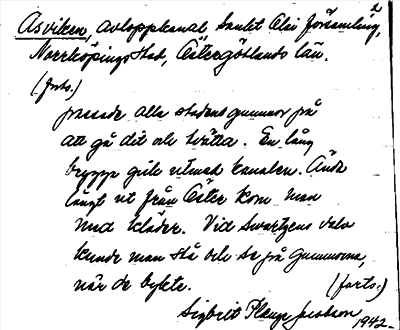 2
Åsviken, avloppskanal, Sankt Olai församling,
Norrköpings stad, Östergötlands län.
(forts.)
pande alla stadens gummor på
att gå dit och tvätta. En lång
brygga gick utmed kanalen. Ända
långt ut från Öster kom man
med kläder. Vid Swartzens valv
kunde man stå och se på gummorna,
när de bykte. (forts.)
Sigbrit Plenge Jacobson
1942-